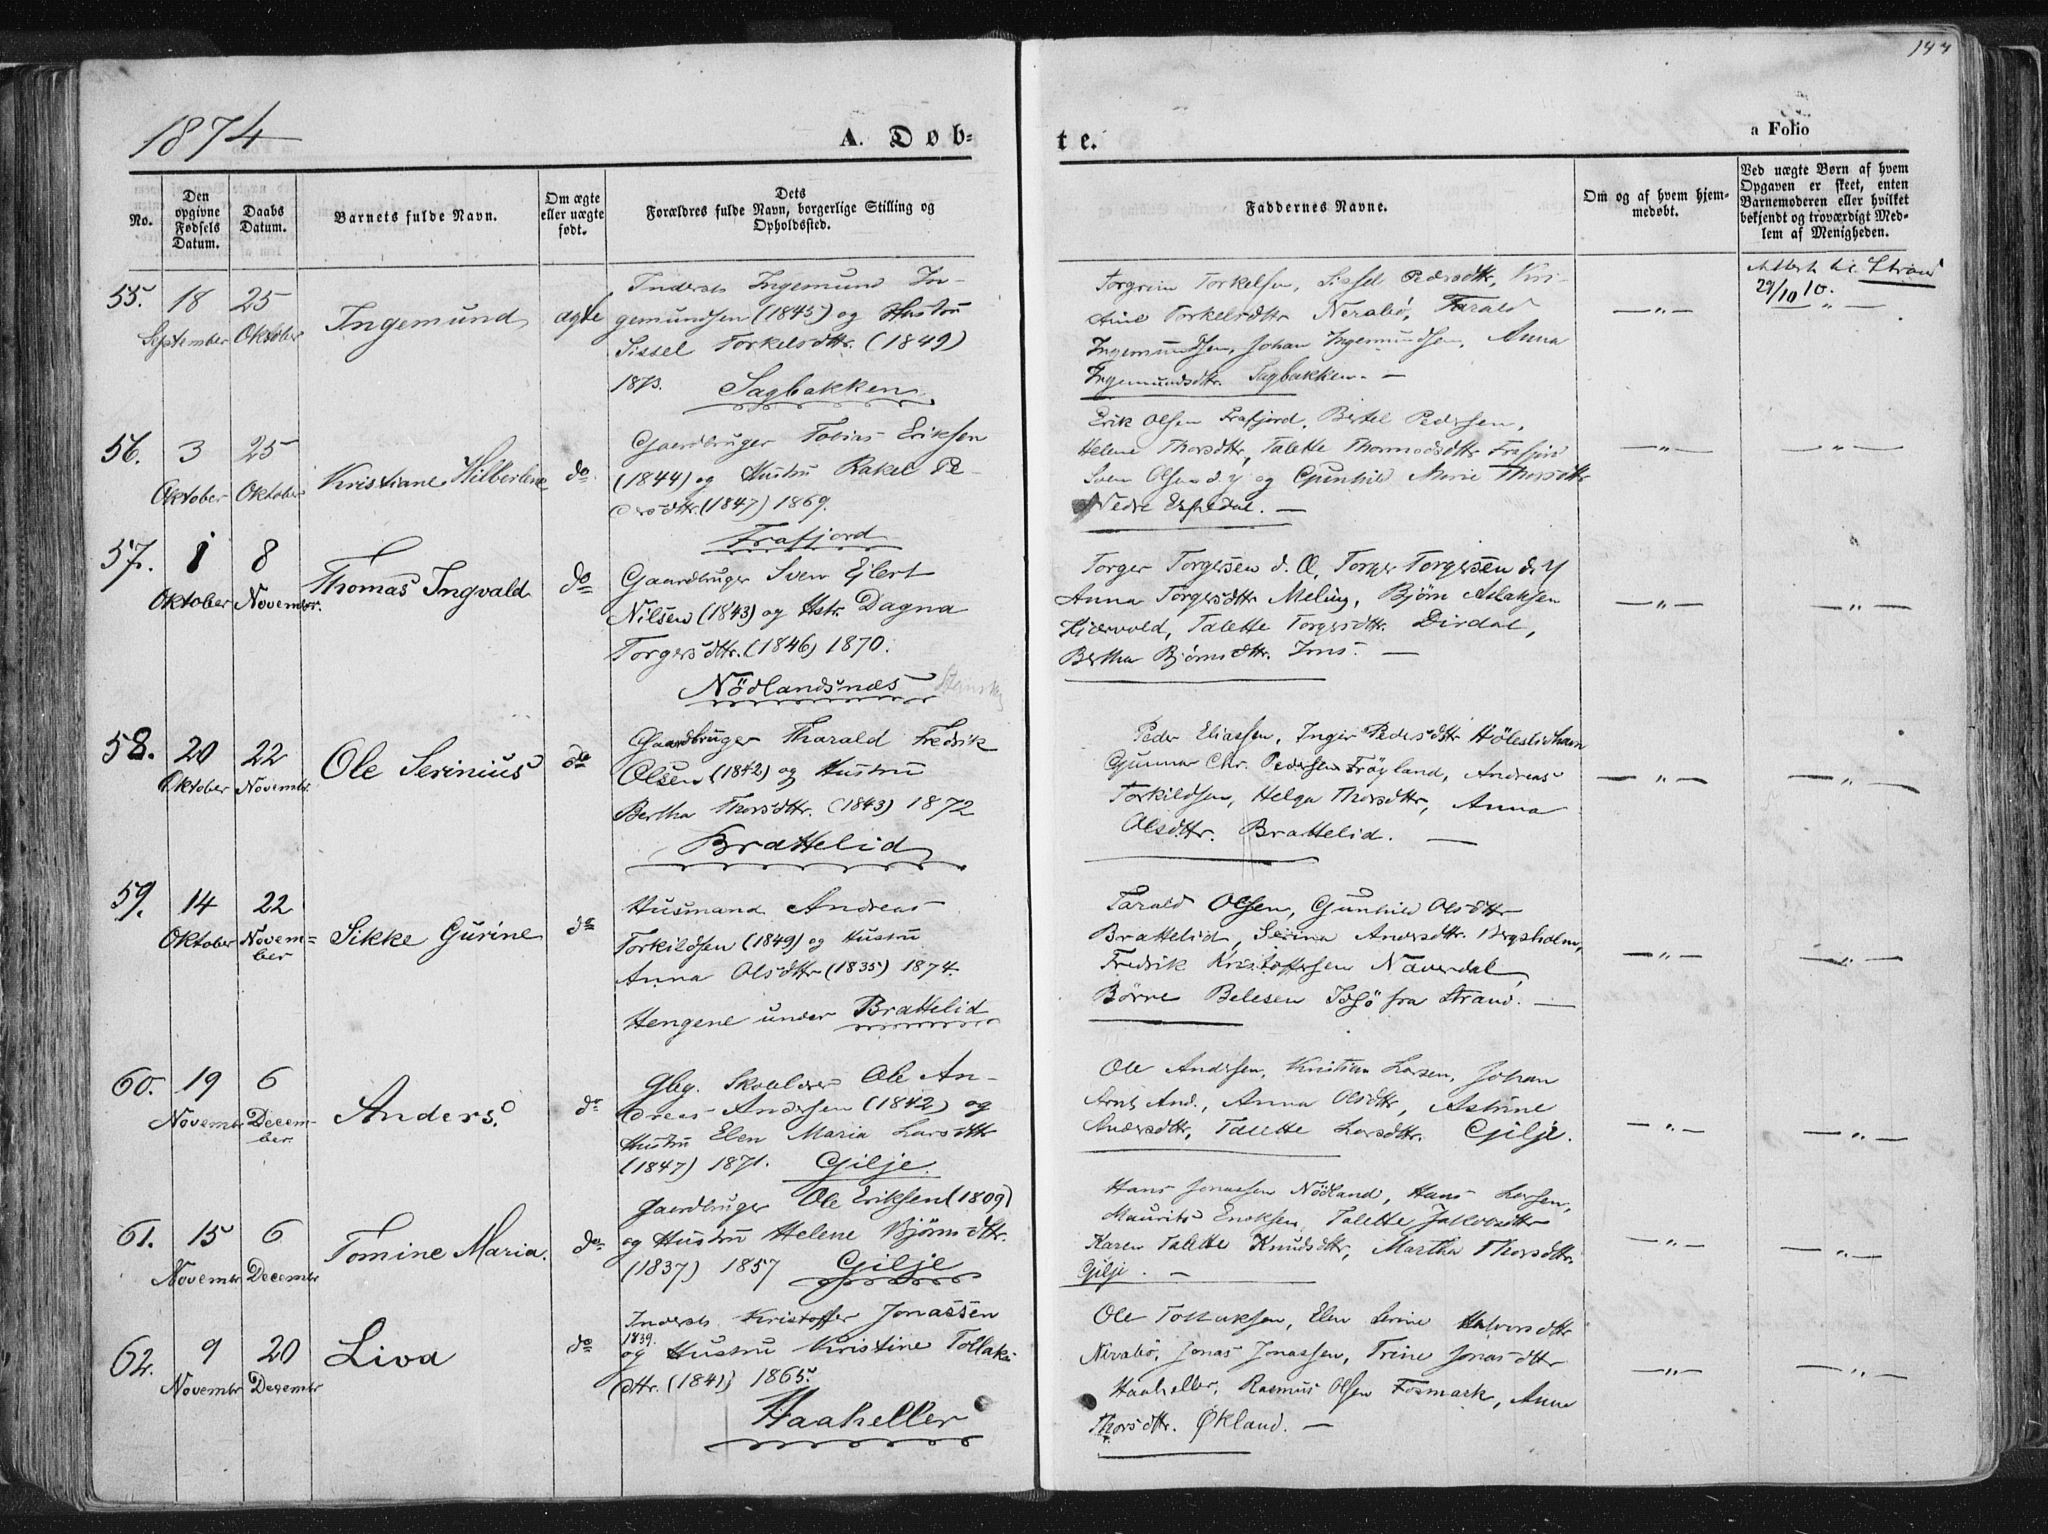 1874
A. Døb-
te.
a Folio
No.
Den opgivne Fødsels Datum.
Daabs Datum.
Barnets fulde Navn.
Om ægte eller uægte født.
Dets Forældres fulde Navn, borgerlige Stilling og Opholdssted.
Faddernes Navne.
Om og af hvem hjemmedøbt.
Ved uægte Børn af hvem Opgaven er skeet, enten Barnemoderen eller hvilket bekjendt og troværdigt Medlem af Menigheden.
55. 18 25
September Oktober
Ingemund
ægte
Inderst Ingemund In-
gemundsen (1845) og Hustru
Sissel Torkelsdttr. (1849)
1873. Sagbakken
Torgrim Torkelsen, Sissel Pedersdttr, Kri-
stine Torkelsdttr Nerabø, Tarald
Ingemundsen, Johan Ingemundsen, Anna
Ingemundsdttr. Sagbakken. —
— " —
Attest til Strand
29/10 10.
— " —
56. 3 25
Oktober Oktober
Kristiane Hilberlene
do.
Gaardbruger Tobias Eriksen
(1844) og Hustru Rakel Pe-
dersdttr. (1847) 1869.
Frafjord
Erik Olsen Frafjord, Bertel Pedersen,
Helene Thorsdttr, Talette Thormodsdttr Frafjord
Sven Olsen d. y og Gunhild Marie Thorsdttr
Nedre Espedal. —
— " —
— " —
57. 1 8
Oktober Novembr.
Thomas Ingvald
do
Gaardbruger Sven Ejlert
Nilsen (1843) og Hstr. Dagna
Torgersdttr. (1846) 1870.
Nödlandsnæs
Torger Torgersen d. Æ, Torger Torgersen d. Y
Anna Torgersdttr Meling, Bjørn Aslaksen
Kidrvold, Talette Torgersdttr. Dirdal,
Bertha Bjørnsdttr. Ims. —
— " —
— " —
58. 20 22
Oktober Novembr.
Ole Serinius
do
Gaardbruger Tharald Fredrik
Olsen (1842) og Hustru
Bertha Thorsdttr. (1843) 1872
Brattelid
Peder Eliassen, Inger Pedersdttr Höleslidhavn
Gunnar Chr. Pedersen Frøyland, Andreas
Torkildsen, Helga Thorsdttr, Anna
Olsdttr. Brattelid. —
— " —
— " —
59. 14 22
Oktober Novem-
ber
Sikke Gurine
do
Husmand Andreas
Torkildsen (1849) og Hustru
Anna Olsdttr (1835) 1874.
Hengene under Brattelid
Tarald Olsen, Gunhild Olsdttr
Brattelid, Serina Andersdttr. Bergsholm,
Fredrik Kristoffersen Næverdal,
Börre Belesen Idsö fra Strand. —
— " —
— " —
60. 19 6
Novembr Decem-
ber
Anders
do
Gbg. Skolelærer Ole An-
dreas Andersen (1842) og
Hustru Elen Maria Larsdttr
(1847) 1871. Gilje.
Ole Andersen, Kristian Larsen, Johan
Arnt And., Anna Olsdttr, Astrine
Andersdttr, Talette Larsdttr. Gilje.
— " —
— " —
61. 15 6
Novembr Decembr
Tomine Maria.
do
Gaardbruger Ole Eriksen (1809)
og Hustru Helene Bjørnsdttr.
(1837) 1857 Gilje
Hans Jonassen Nödland, Hans Larsen,
Maurits Enoksen, Talette Jakobsdttr
Karen Talette Knudsdttr, Martha Thorsdttr.
Gilje. —
— " —
— " —
62. 9 20
Novembr Decembr
Liva
do
Inderst Kristoffer Jonassen
1839.
og Hustru Kristine Tollaks-
dttr. (1841) 1865.
Haaheller
Ole Tollaksen, Elen Serine Halvorsdttr
Nerabø, Jonas Jonassen, Trine Jonasdttr
Haaheller, Rasmus Olsen Fosmark, Anna
Thorsdttr. Økland. —
— " —
— " —